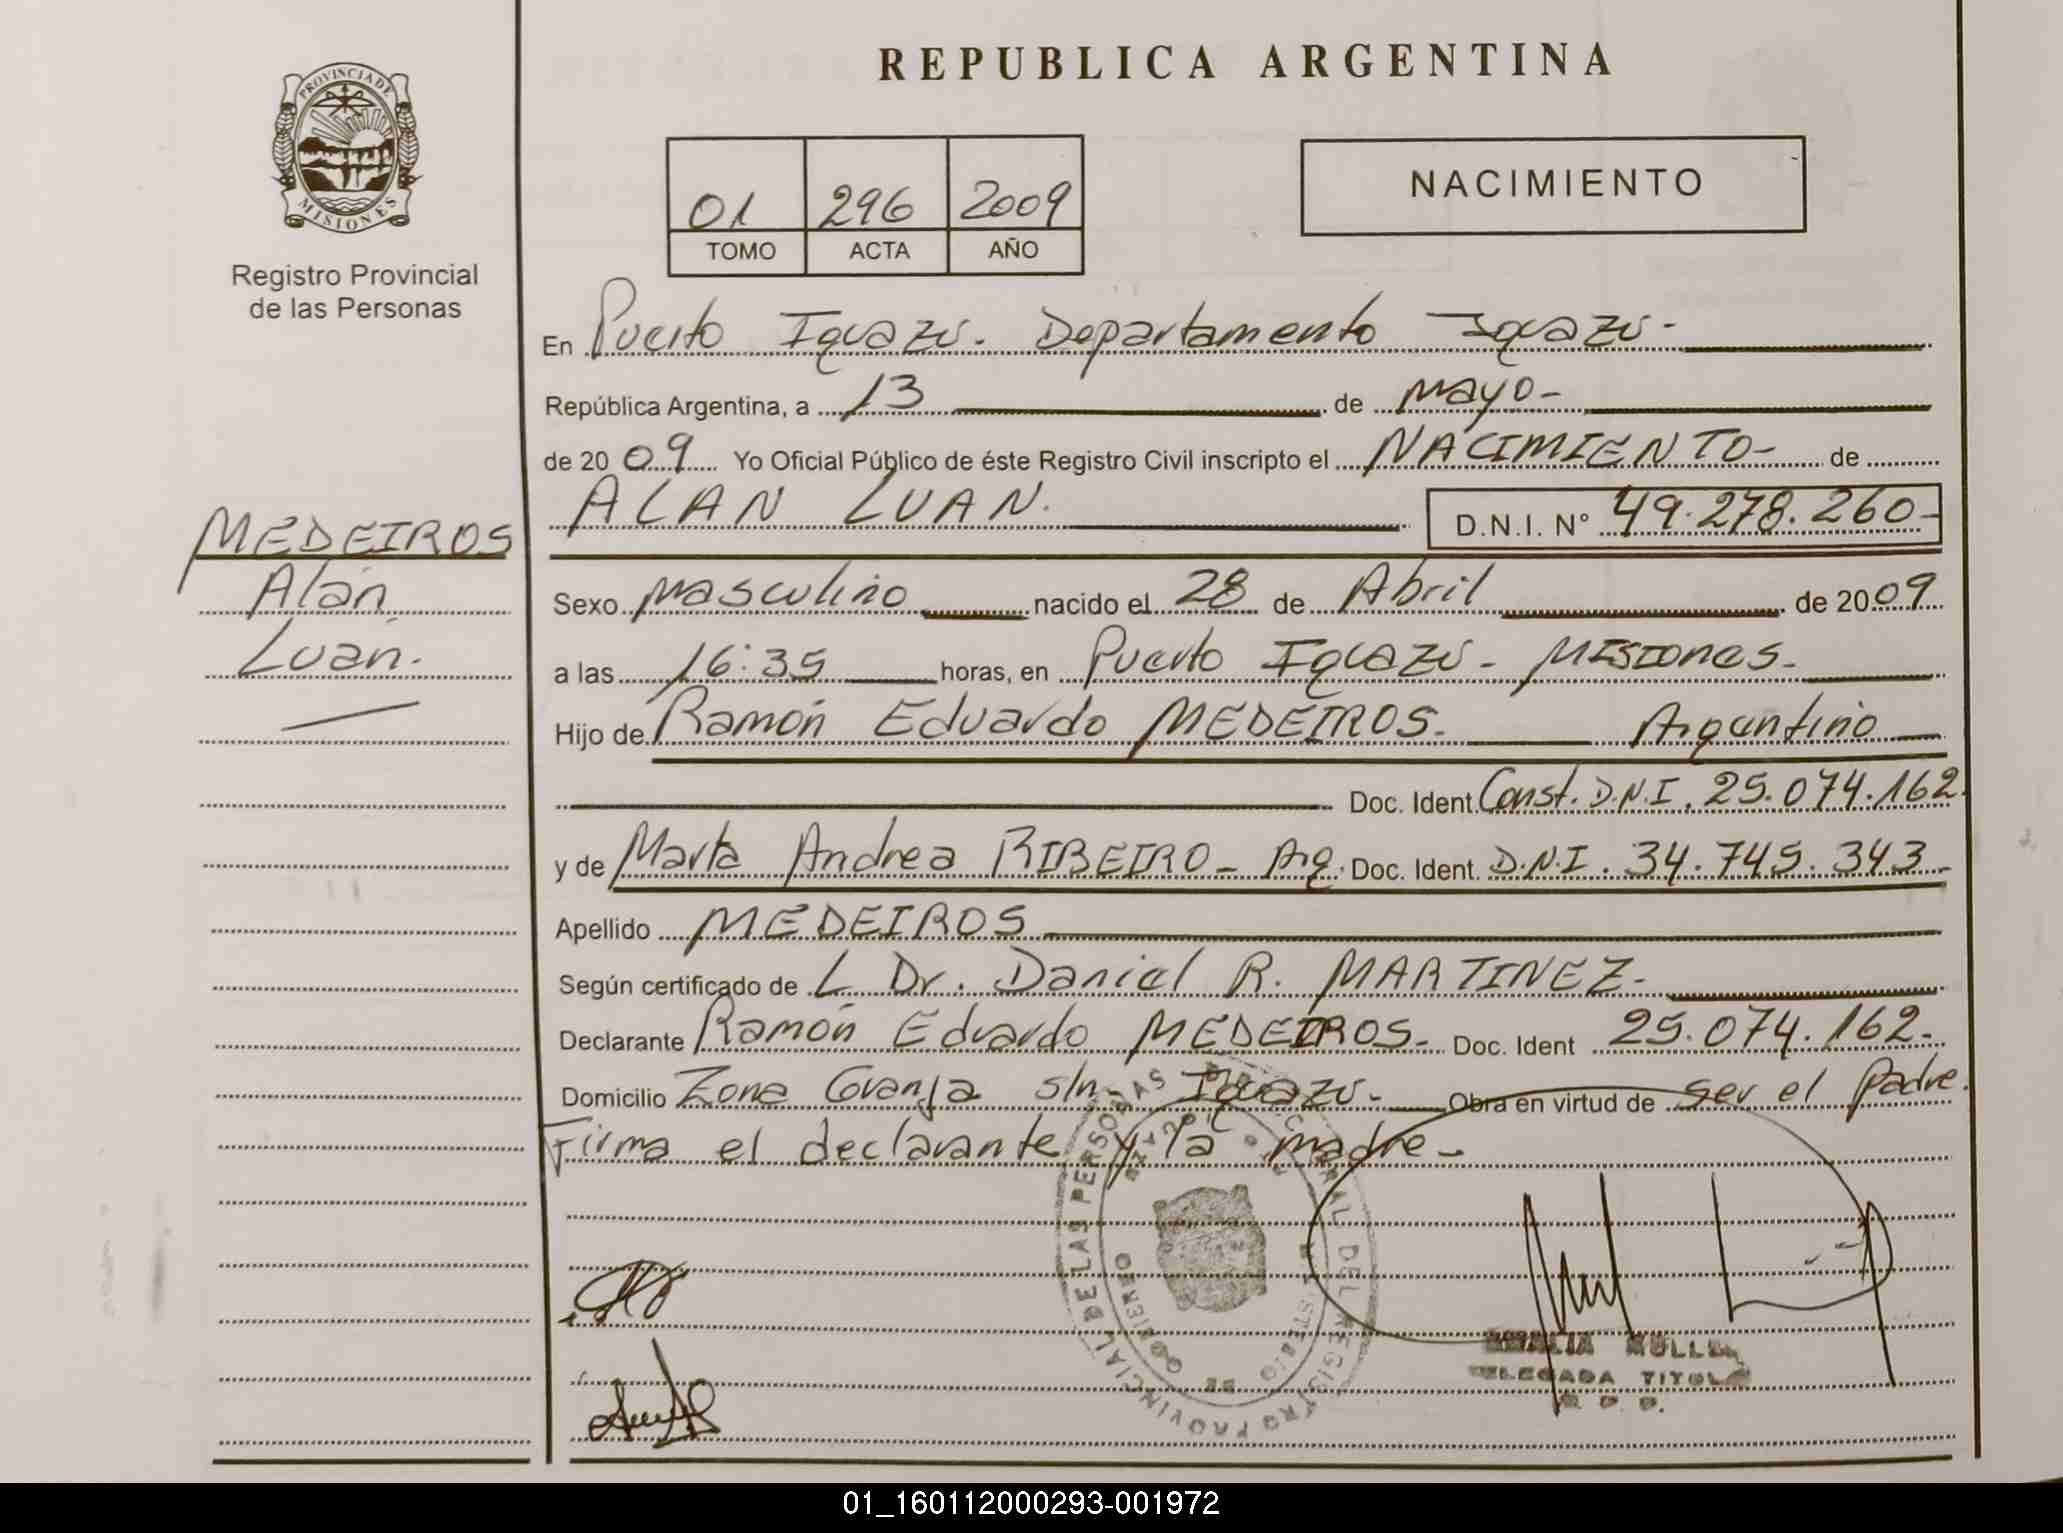 REPUBLICA ARGENTINA
PROVINCIA DE
MISIONES
Registro Provincial
de las Personas
01 296 2009
TOMO ACTA AÑO
NACIMIENTO
En Puerto Iguazú. Departamento Iguazú-
República Argentina, a 13 de mayo-
de 2009 Yo Oficial Público de éste Registro Civil inscripto el NACIMIENTO- de
ALAN LUAN. D.N.I. N° 49.278.260-
MEDEIROS
Alan
Luan.
Sexo masculino nacido el 28 de Abril de 2009
a las 16:35 horas, en Puerto Iguazú- MISIONES-
Hijo de Ramón Eduardo MEDEIROS- Argentino
Doc. Ident. Const. D.N.I. 25.074.162.
y de Marta Andrea RIBEIRO- Arg. Doc. Ident. D.N.I. 34.745.343-
Apellido MEDEIROS
Según certificado de L Dr. Daniel R. MARTINEZ-
Declarante Ramón Eduardo MEDEIROS- Doc. Ident 25.074.162-
Domicilio Zona Granja s/n. Iguazú- Obra en virtud de ser el padre.
Firma el declarante y la madre-
REGISTRO PROVINCIAL DE LAS PERSONAS
DE GOBIERNO
DELEGADA TITULAR
01_160112000293-001972